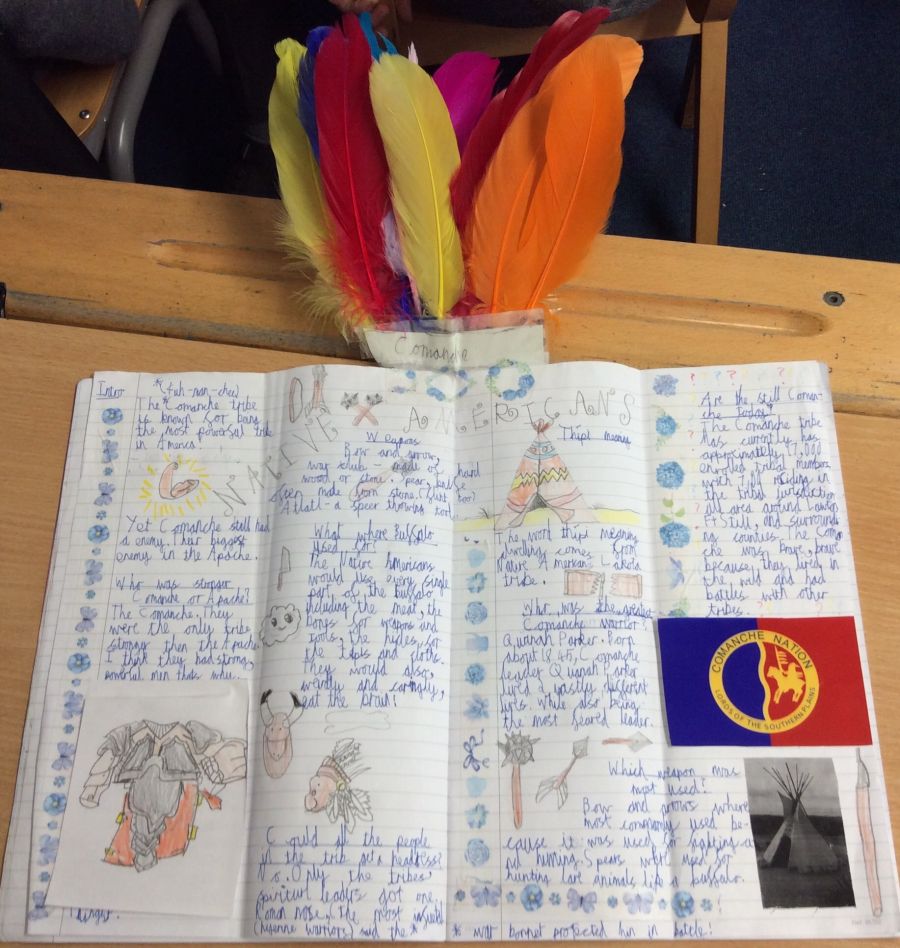 Comanche
NATIVE AMERICANS
Intro
*(tuh-nan-chee)
The Comanche tribe
is known for being
the most powerful tribe
in America.
Yet Comanche still had
a enemy, their biggest
enemy in the Apache.
Who was stronger
Comanche or Apache?
The Comanche, they
were the only tribe
stronger then the Apache
I think they had strong
powerful men thats why.
Weapons
Bow and arrow,
war club - made of hard
wood or stone. Spear, knife
often made from stone. (flint too)
Atlatl - a speer throwing tool.
What where Buffalo
used for?
The Native Americans
would use every single
part of the buffalo
including the meat, the
bones for weapons and
tools, the hydes for
the tipis and cloths.
They would also,
weirdly and caringly,
eat the brain!
Could all the people
in the trib get a headress?
No. Only the tribes
spiritual leaders got one.
Roman Nose, the most
(cheyenne warriors) said the *
* war bonnet protected him in battle!
Thipi meaning
The word thipi meaning
dwelling comes from
Native Americans Lakota
tribe.
Who was the greatest
Comanche warrior?
Quanah Parker. Born
about 1845, Comanche
leader Quanah Parker
lived 2 vastly different
lifes. While also being
the most feared leader.
Which weapon was
most used?
Bow and arrows where
most commonly used be-
cause it was used for fighting
and hunting. Spears were used for
hunting large animals like a buffalo.
Are the still Coman-
che today?
The Comanche tribe
has currently has
approximately 17,000
enrolled tribal members
with 7,00 residing in
the tribal jurisdiction
all area around Lawton,
Ft Sill, and surround
ing counties. The Coma
che was brave, brave
because they lived in
the wild and had
battles with other
tribes.
COMANCHE NATION
LORDS OF THE SOUTHERN PLAINS